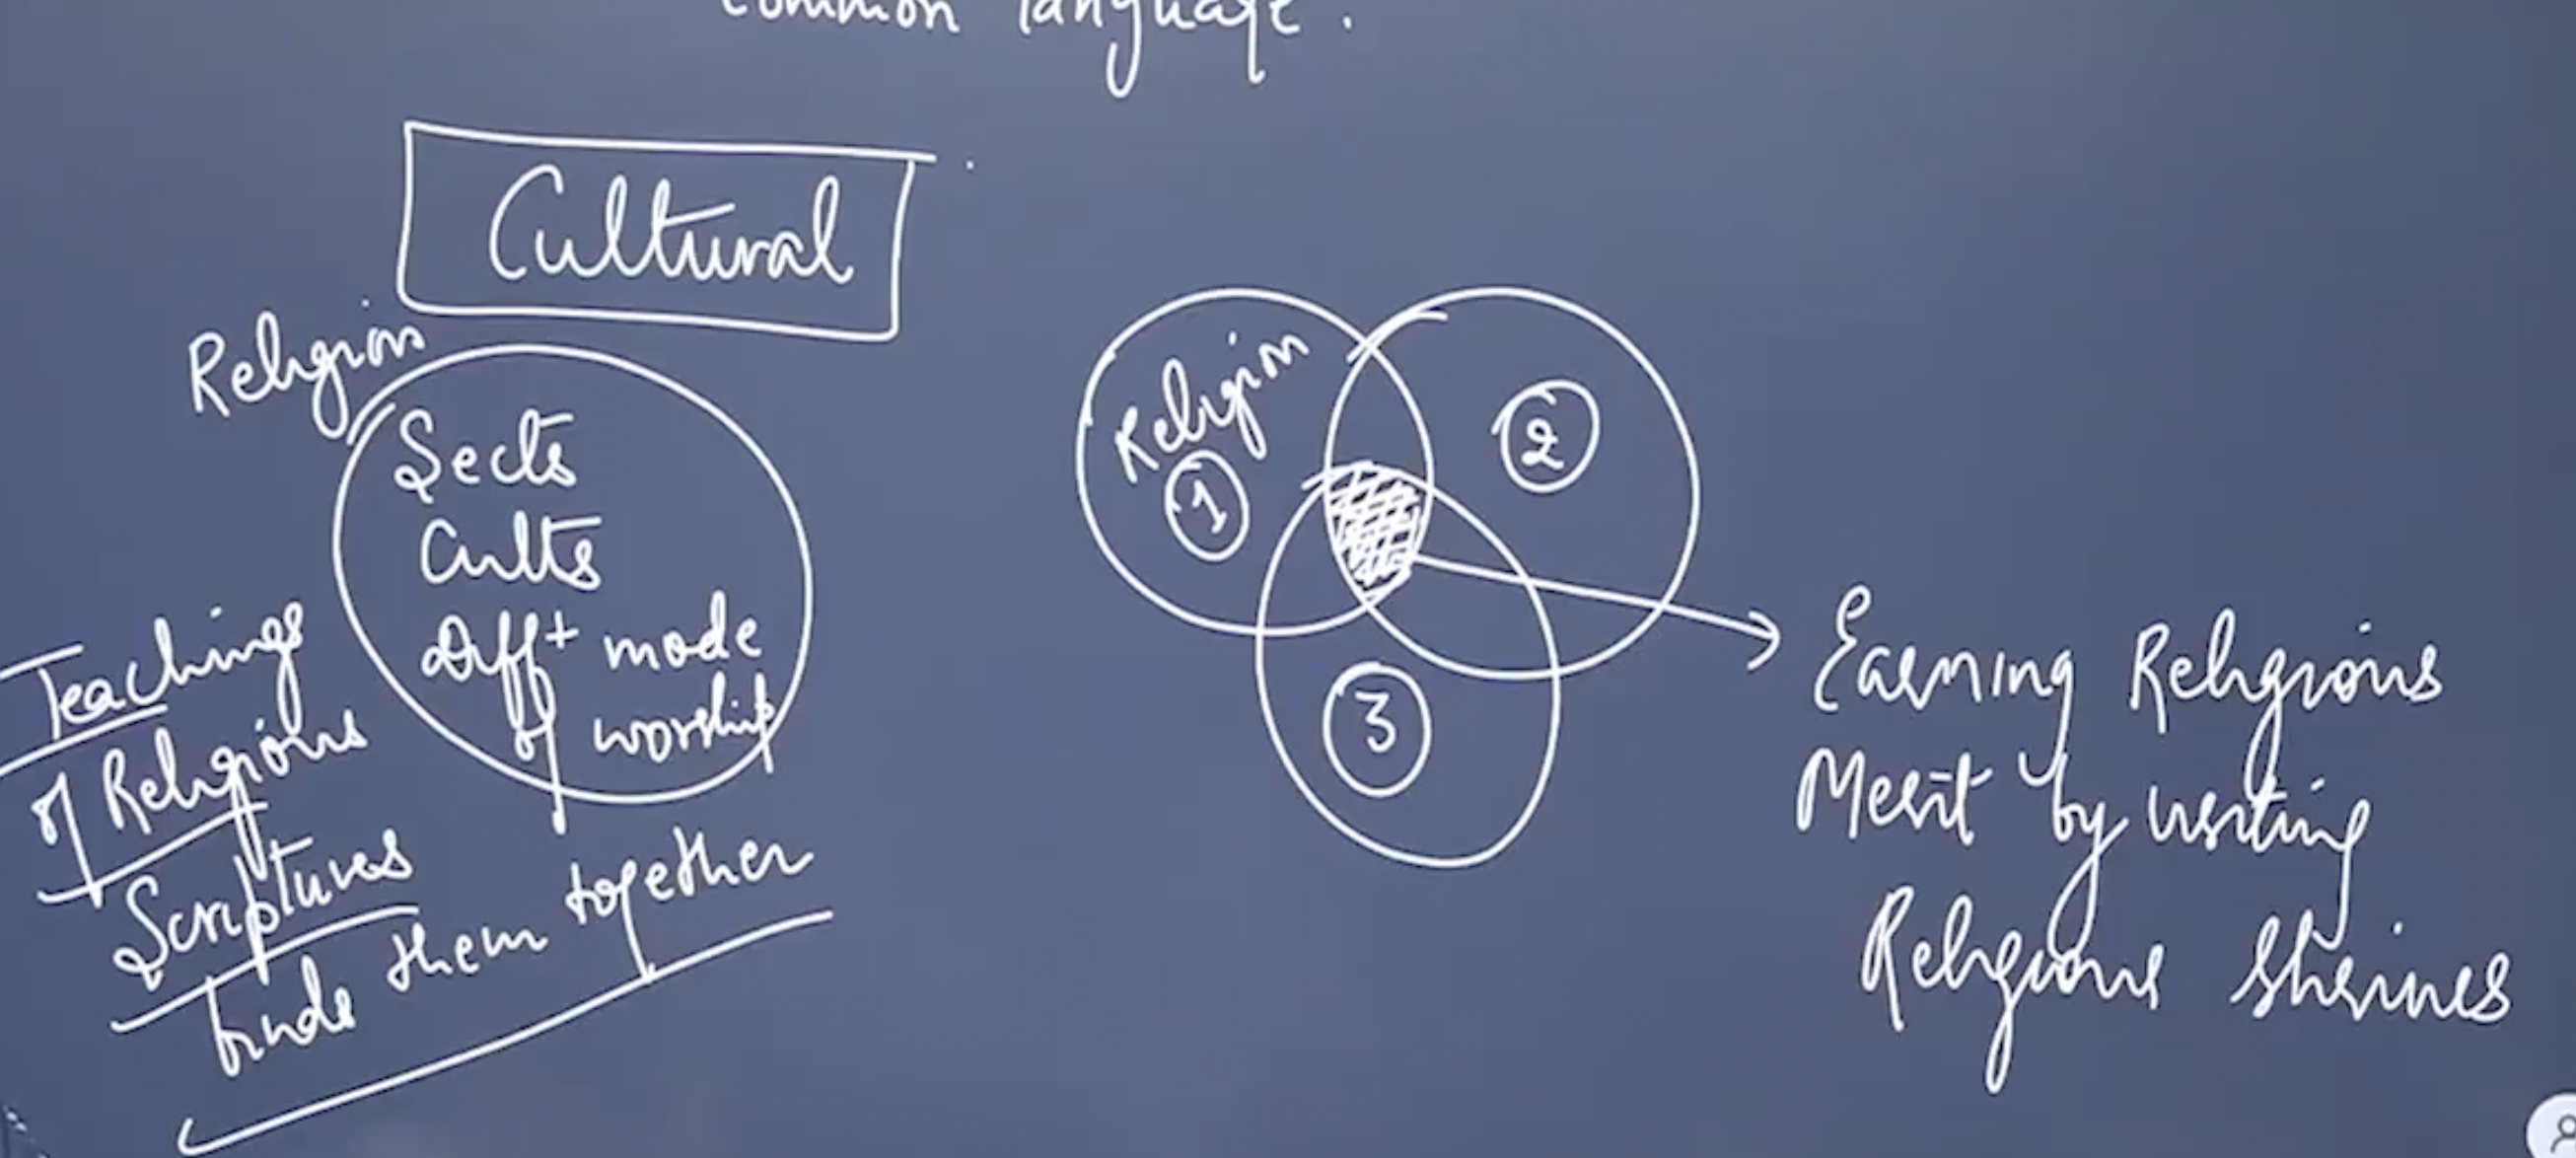 common language.
Cultural
Religion
Sects
Cults
Difft mode
of worship
Teachings
of Religious
Scriptures
binds them together
Religion
1
2
3
Earning Religious
Merit by visiting
Religious Shrines